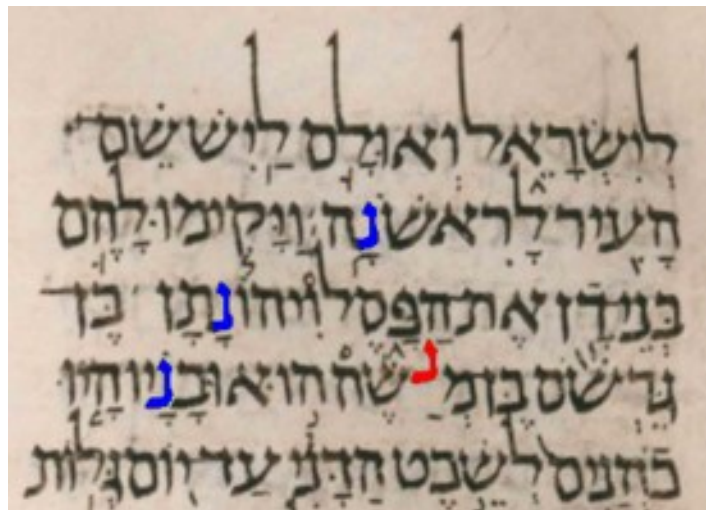 לְיִשְׂרָאֵל וְאוּלָם לַיִשׁ שֵׁם־
הָעִיר לָרִאשֹׁנָה׃ וַיָּקִימוּ לָהֶם
בְּנֵי־דָן אֶת־הַפָּסֶל וִיהוֹנָתָן בֶּן־
גֵּרְשֹׁם בֶּן־מְנַשֶּׁה הוּא וּבָנָיו הָיוּ
כֹהֲנִים לְשֵׁבֶט הַדָּנִי עַד־יוֹם גְּלוֹת